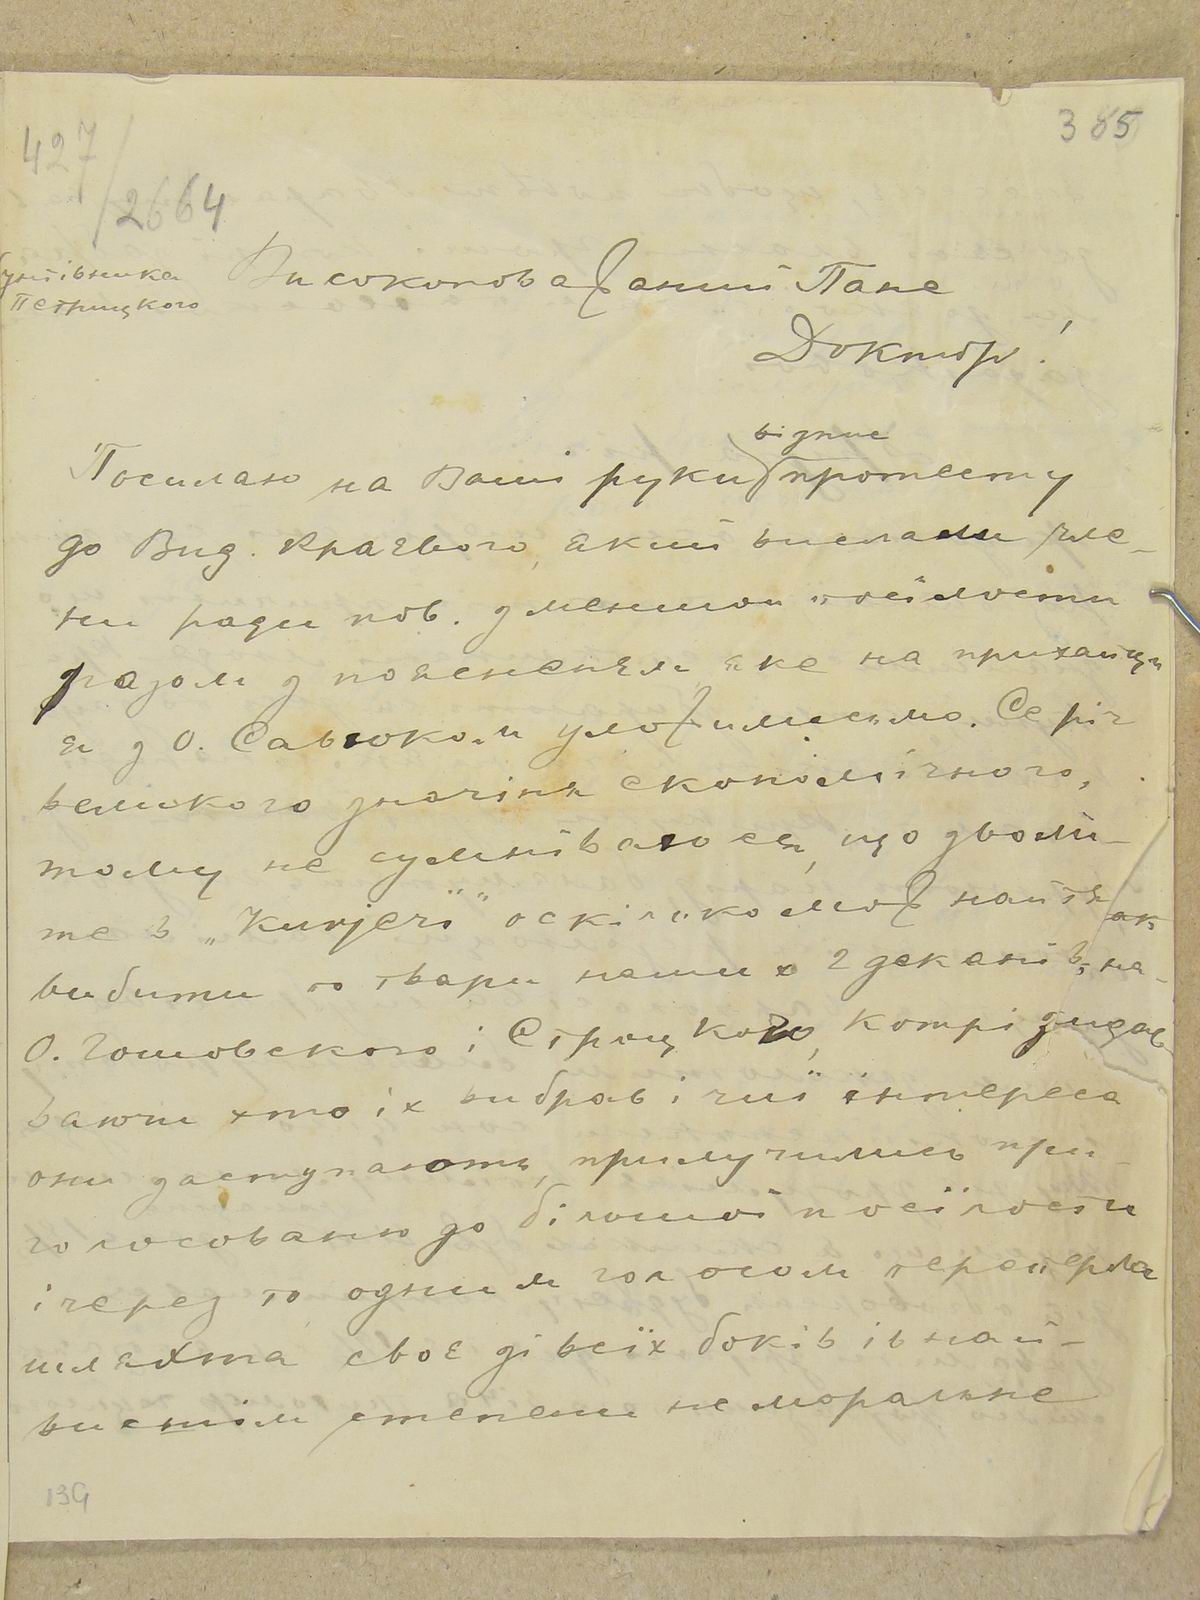 427/2664
385
Петрицкого
Високоповажаний Пане
Доктор!
відпис
Посилаю на Ваші руки протесту
до Вид. краєвого, який вислали чле-
ни ради пов. з меншои посїлости
разом з поясненям яке на
я з О. Савюком уложилисьмо. Се річ
великого значіня економічного,
тому не сумніваюся, що зволи-
те в „Kurjerї" оскілько мож найтяж
вибити по твари наших 2 деканів,
О. Гошовского і Строцкого, котрі
ваючи хто їх вибрав і чиї інтереса
они заступають, прилучились при
голосованю до більшої посїлости
і через то одним голосом переперла
шляхта своє зі всїх боків і в най-
висшім степени неморальне
139